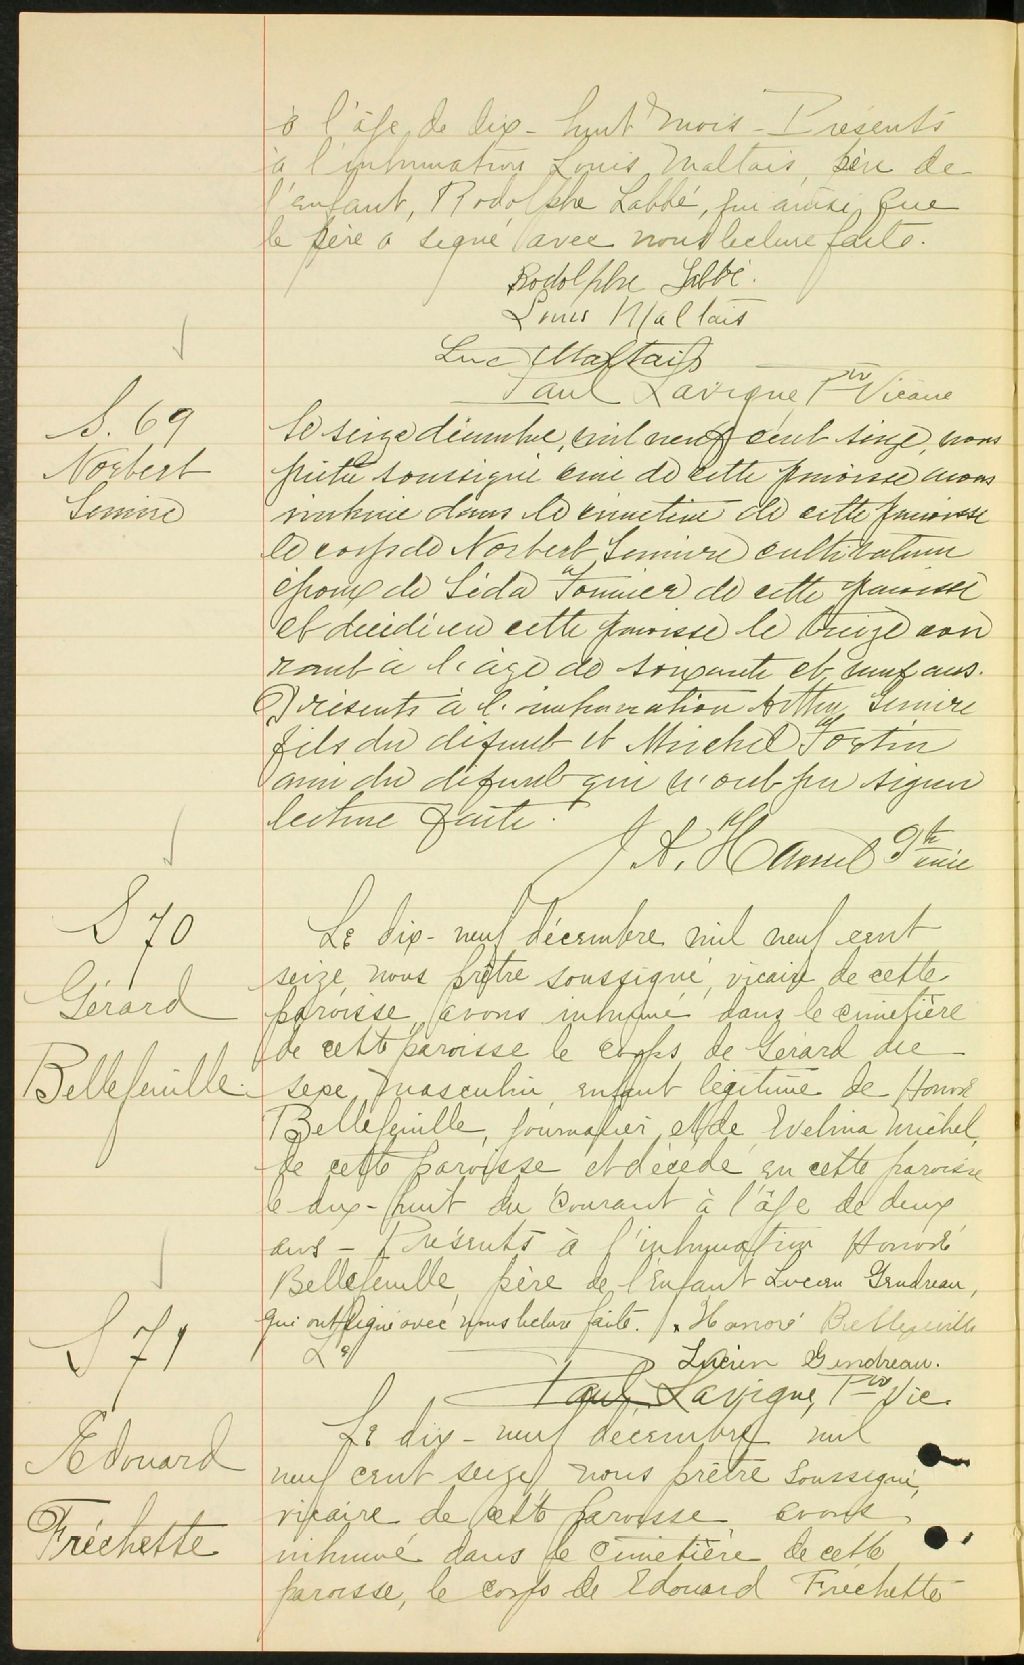 à l'âge de dix-huit mois - Présents
à l'inhumation Louis Maltais, père de
l'enfant, Rodolphe Labbé, qui ainsi que
le père a signé avec nous lecture faite.
Rodolphe Labbé.
Louis Maltais
Luc Maltais
Paul Lavigne, Ptre Vicaire
S. 69
Norbert
Simire
Le seize décembre, mil neuf cent seize, nous
prêtre soussigné curé de cette paroisse avons
inhumé dans le cimetière de cette paroisse
le corps de Norbert Simire cultivateur
époux de Léda Fournier de cette paroisse
et décédé en cette paroisse le treize cou
rant à l'âge de soixante et neuf ans.
Présents à l'inhumation Arthur Simire
fils du défunt et Michel Fortin
ami du défunt qui n'ont pu signer
lecture faite.
J. A. Hamel Ptre curé
S 70
Gérard
Bellefeuille.
Le dix-neuf décembre mil neuf cent
seize, nous prêtre soussigné, vicaire de cette
paroisse, avons inhumé dans le cimetière
de cette paroisse le corps de Gérard du
sexe masculin, enfant légitime de Honoré
Bellefeuille, journalier, et de Evelina Michel,
de cette paroisse et décédé en cette paroisse
le dix-huit du courant à l'âge de deux
ans - Présents à l'inhumation Honoré
Bellefeuille, père de l'Enfant Lucien Gendreau,
qui ont signé avec nous lecture faite. x Honoré Bellefeuille
Le
Lucien Gendreau.
Paul Lavigne, Ptre Vic.
S 71
Edouard
Fréchette
Le dix-neuf décembre mil
neuf cent seize, nous prêtre soussigné,
vicaire de cette paroisse avons
inhumé dans le cimetière de cette
paroisse, le corps de Edouard Frechette